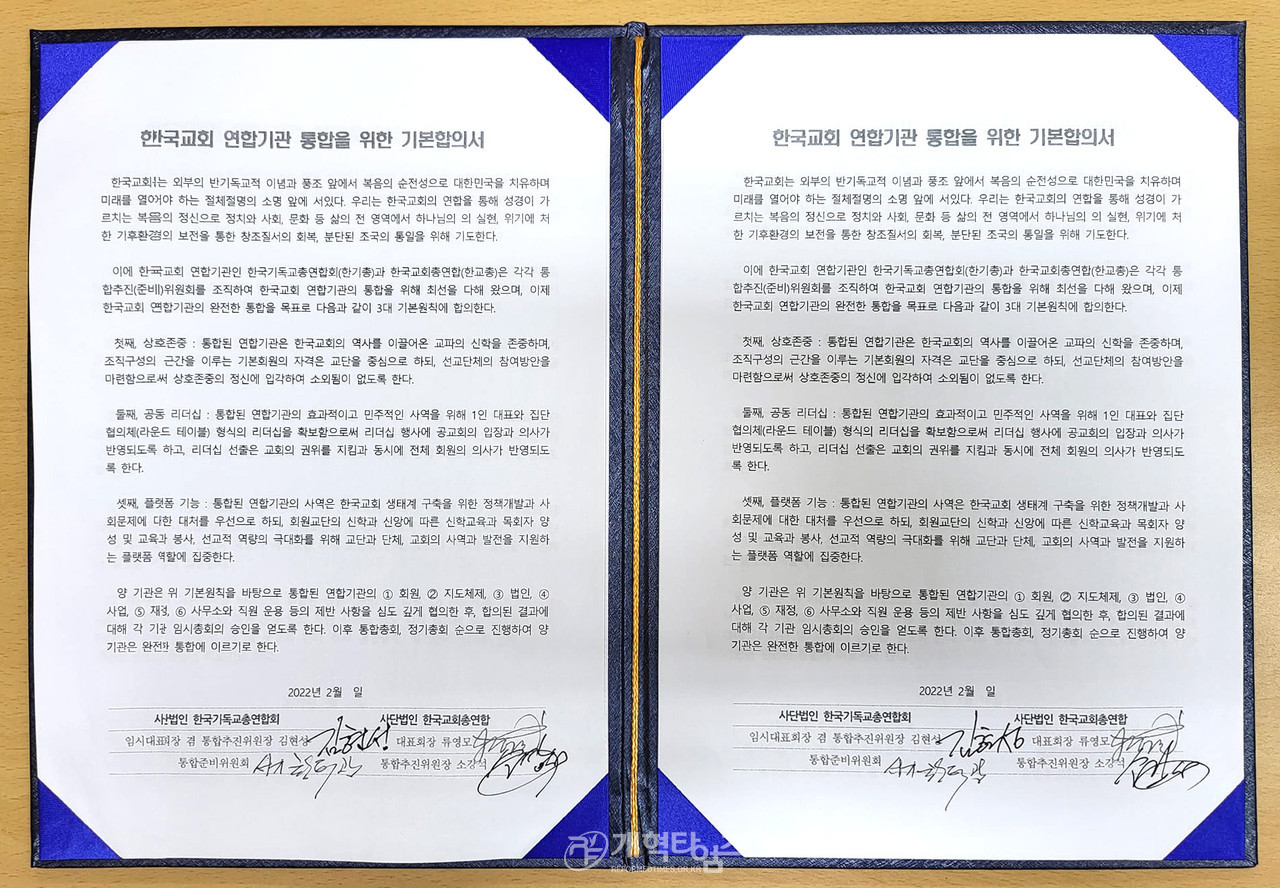 한국교회 연합기관 통합을 위한 기본합의서
한국교회는 외부의 반기독교적 이념과 풍조 앞에서 복음의 순전성으로 대한민국을 치유하며
미래를 열어야 하는 절체절명의 소명 앞에 서있다. 우리는 한국교회의 연합을 통해 성경이 가
르치는 복음의 정신으로 정치와 사회, 문화 등 삶의 전 영역에서 하나님의 의 실현, 위기에 처
한 기후환경의 보전을 통한 창조질서의 회복, 분단된 조국의 통일을 위해 기도한다.
이에 한국교회 연합기관인 한국기독교총연합회(한기총)과 한국교회총연합(한교총)은 각각 통
합추진(준비)위원회를 조직하여 한국교회 연합기관의 통합을 위해 최선을 다해 왔으며, 이제
한국교회 연합기관의 완전한 통합을 목표로 다음과 같이 3대 기본원칙에 합의한다.
첫째, 상호존중 : 통합된 연합기관은 한국교회의 역사를 이끌어온 교파의 신학을 존중하며,
조직구성의 근간을 이루는 기본회원의 자격은 교단을 중심으로 하되, 선교단체의 참여방안을
마련함으로써 상호존중의 정신에 입각하여 소외됨이 없도록 한다.
둘째, 공동 리더십 : 통합된 연합기관의 효과적이고 민주적인 사역을 위해 1인 대표와 집단
협의체(라운드 테이블) 형식의 리더십을 확보함으로써 리더십 행사에 공교회의 입장과 의사가
반영되도록 하고, 리더십 선출은 교회의 권위를 지킴과 동시에 전체 회원의 의사가 반영되도
록 한다.
셋째, 플랫폼 기능 : 통합된 연합기관의 사역은 한국교회 생태계 구축을 위한 정책개발과 사
회문제에 대한 대처를 우선으로 하되, 회원교단의 신학과 신앙에 따른 신학교육과 목회자 양
성 및 교육과 봉사, 선교적 역량의 극대화를 위해 교단과 단체, 교회의 사역과 발전을 지원하
는 플랫폼 역할에 집중한다.
양 기관은 위 기본원칙을 바탕으로 통합된 연합기관의 ① 회원, ② 지도체제, ③ 법인, ④
사업, ⑤ 재정, ⑥ 사무소와 직원 운용 등의 제반 사항을 심도 깊게 협의한 후, 합의된 결과에
대해 각 기관 임시총회의 승인을 얻도록 한다. 이후 통합총회, 정기총회 순으로 진행하여 양
기관은 완전한 통합에 이르기로 한다.
2022년 2월 일
사단법인 한국기독교총연합회 사단법인 한국교회총연합
임시대표회장 겸 통합추진위원장 김현성 대표회장 류영모
통합준비위원회 통합추진위원장 소강석
한국교회 연합기관 통합을 위한 기본합의서
한국교회는 외부의 반기독교적 이념과 풍조 앞에서 복음의 순전성으로 대한민국을 치유하며
미래를 열어야 하는 절체절명의 소명 앞에 서있다. 우리는 한국교회의 연합을 통해 성경이 가
르치는 복음의 정신으로 정치와 사회, 문화 등 삶의 전 영역에서 하나님의 의 실현, 위기에 처
한 기후환경의 보전을 통한 창조질서의 회복, 분단된 조국의 통일을 위해 기도한다.
이에 한국교회 연합기관인 한국기독교총연합회(한기총)과 한국교회총연합(한교총)은 각각 통
합추진(준비)위원회를 조직하여 한국교회 연합기관의 통합을 위해 최선을 다해 왔으며, 이제
한국교회 연합기관의 완전한 통합을 목표로 다음과 같이 3대 기본원칙에 합의한다.
첫째, 상호존중 : 통합된 연합기관은 한국교회의 역사를 이끌어온 교파의 신학을 존중하며,
조직구성의 근간을 이루는 기본회원의 자격은 교단을 중심으로 하되, 선교단체의 참여방안을
마련함으로써 상호존중의 정신에 입각하여 소외됨이 없도록 한다.
둘째, 공동 리더십 : 통합된 연합기관의 효과적이고 민주적인 사역을 위해 1인 대표와 집단
협의체(라운드 테이블) 형식의 리더십을 확보함으로써 리더십 행사에 공교회의 입장과 의사가
반영되도록 하고, 리더십 선출은 교회의 권위를 지킴과 동시에 전체 회원의 의사가 반영되도
록 한다.
셋째, 플랫폼 기능 : 통합된 연합기관의 사역은 한국교회 생태계 구축을 위한 정책개발과 사
회문제에 대한 대처를 우선으로 하되, 회원교단의 신학과 신앙에 따른 신학교육과 목회자 양
성 및 교육과 봉사, 선교적 역량의 극대화를 위해 교단과 단체, 교회의 사역과 발전을 지원하
는 플랫폼 역할에 집중한다.
양 기관은 위 기본원칙을 바탕으로 통합된 연합기관의 ① 회원, ② 지도체제, ③ 법인, ④
사업, ⑤ 재정, ⑥ 사무소와 직원 운용 등의 제반 사항을 심도 깊게 협의한 후, 합의된 결과에
대해 각 기관 임시총회의 승인을 얻도록 한다. 이후 통합총회, 정기총회 순으로 진행하여 양
기관은 완전한 통합에 이르기로 한다.
2022년 2월 일
사단법인 한국기독교총연합회 사단법인 한국교회총연합
임시대표회장 겸 통합추진위원장 김현성 대표회장 류영모
통합준비위원회 통합추진위원장 소강석
개혁타임즈
REFORMEDTIMES.OR.KR